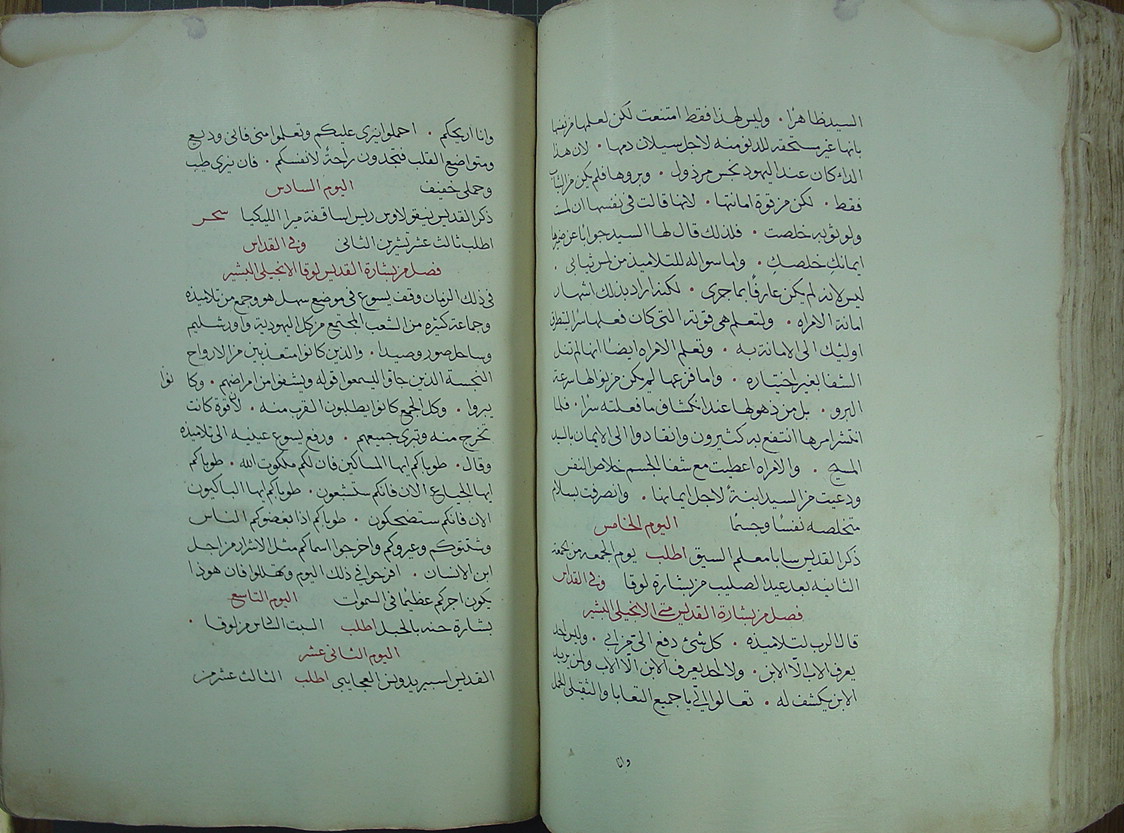 السيد ظاهرًا . وليس لهذا فقط امتنعت لكن لعلمها من نفسها
بانها غير مستحقه للدنو منه لاجل سيلان دمها . لان هذا
الداء كان عند اليهود نجس مرذول . وبروها فلم يكن من الثياب
فقط . لكن من قوة امانتها . لانها قالت في نفسها ان لمست
ولو ثوبه خلصت . فلذلك قال لها السيد جوابًا عن ضميرها
ايمانك خلصك . واما سواله للتلاميذ من لمس ثيابي .
ليس لانه لم يكن عارفًا بما جرى . لكنه اراد بذلك اشهار
امانة الامراه . ولتعلم هي قوته التي كان فعلها سرًا
اوليك الى الامانة به . وتعلم الامراه ايضًا انها لم تنل
الشفا بغير اختياره . واما فزعها لم يكن من لها سرعة
البرو . بل من ذهولها عند انكشاف ما فعلته سرًا . فلما
انتشر امرها انتفع به كثيرون وانقادوا الى الايمان بالسيد
المسيح . والامراه اعطيت مع شفا الجسم خلاص النفس
ودعيت من السيد ابنةً لاجل ايمانها . وانصرفت بسلام
متخلصه نفسًا وجسمًا اليوم الخامس
ذكر القديس سابا معلم السيق اطلب يوم الجمعه من الجمعة
الثانيه بعد عيد الصليب من بشارة لوقا وفي القداس
فصل من بشارة القديس متى الانجيلي البشير
قال الرب لتلاميذه . كل شيء دفع الي من ابي . وليس احد
يعرف الابن الّا الاب . ولا احد يعرف الاب الّا الابن ومن يريد
الابن يكشف له . تعالوا اليّ يا جميع التعابا والثقيلي الحمل
وانا
وانا اريحكم . احملوا نيري عليكم وتعلموا مني فاني وديع
ومتواضع القلب فتجدون راحةً لانفسكم . فان نيري طيب
وحملي خفيف اليوم السادس
ذكر القديس نيقولاوس ريس اساقفة ميرا الليكيا سحر
اطلب ثالث عشر تشرين الثاني وفي القداس
فصل من بشارة القديس لوقا الانجيلي البشير
في ذلك الزمان وقف يسوع في موضع سهل هو وجمع من تلاميذه
وجماعة كثيره من الشعب المجتمع من كل اليهودية واورشليم
وساحل صور وصيدا . والذين كانوا متعذبين من الارواح
النجسة الذين جاوا ليسمعوا قوله ويشفوا من امراضهم . وكانوا
يبروا . وكل الجمع كانوا يطلبون القرب منه . لان قوة كانت
تخرج منه وتبري جميعهم . ورفع يسوع عينيه الى تلاميذه
وقال . طوباكم ايها المساكين فان لكم ملكوت الله . طوباكم
ايها الجياع الان فانكم ستشبعون . طوباكم ايها الباكيون
الان فانكم ستضحكون . طوباكم اذا ابغضوكم الناس
وشتموكم وعيروكم واخرجوا اسماكم مثل الاشرار من اجل
ابن الانسان . افرحوا في ذلك اليوم وتهللوا فان هوذا
يكون اجركم عظيمًا في السموات اليوم التاسع
بشارة حنه بالحبل اطلب السبت الثامن من لوقا .
اليوم الثاني عشر
القديس اسبيريدونس العجايبي اطلب الثالث عشر من